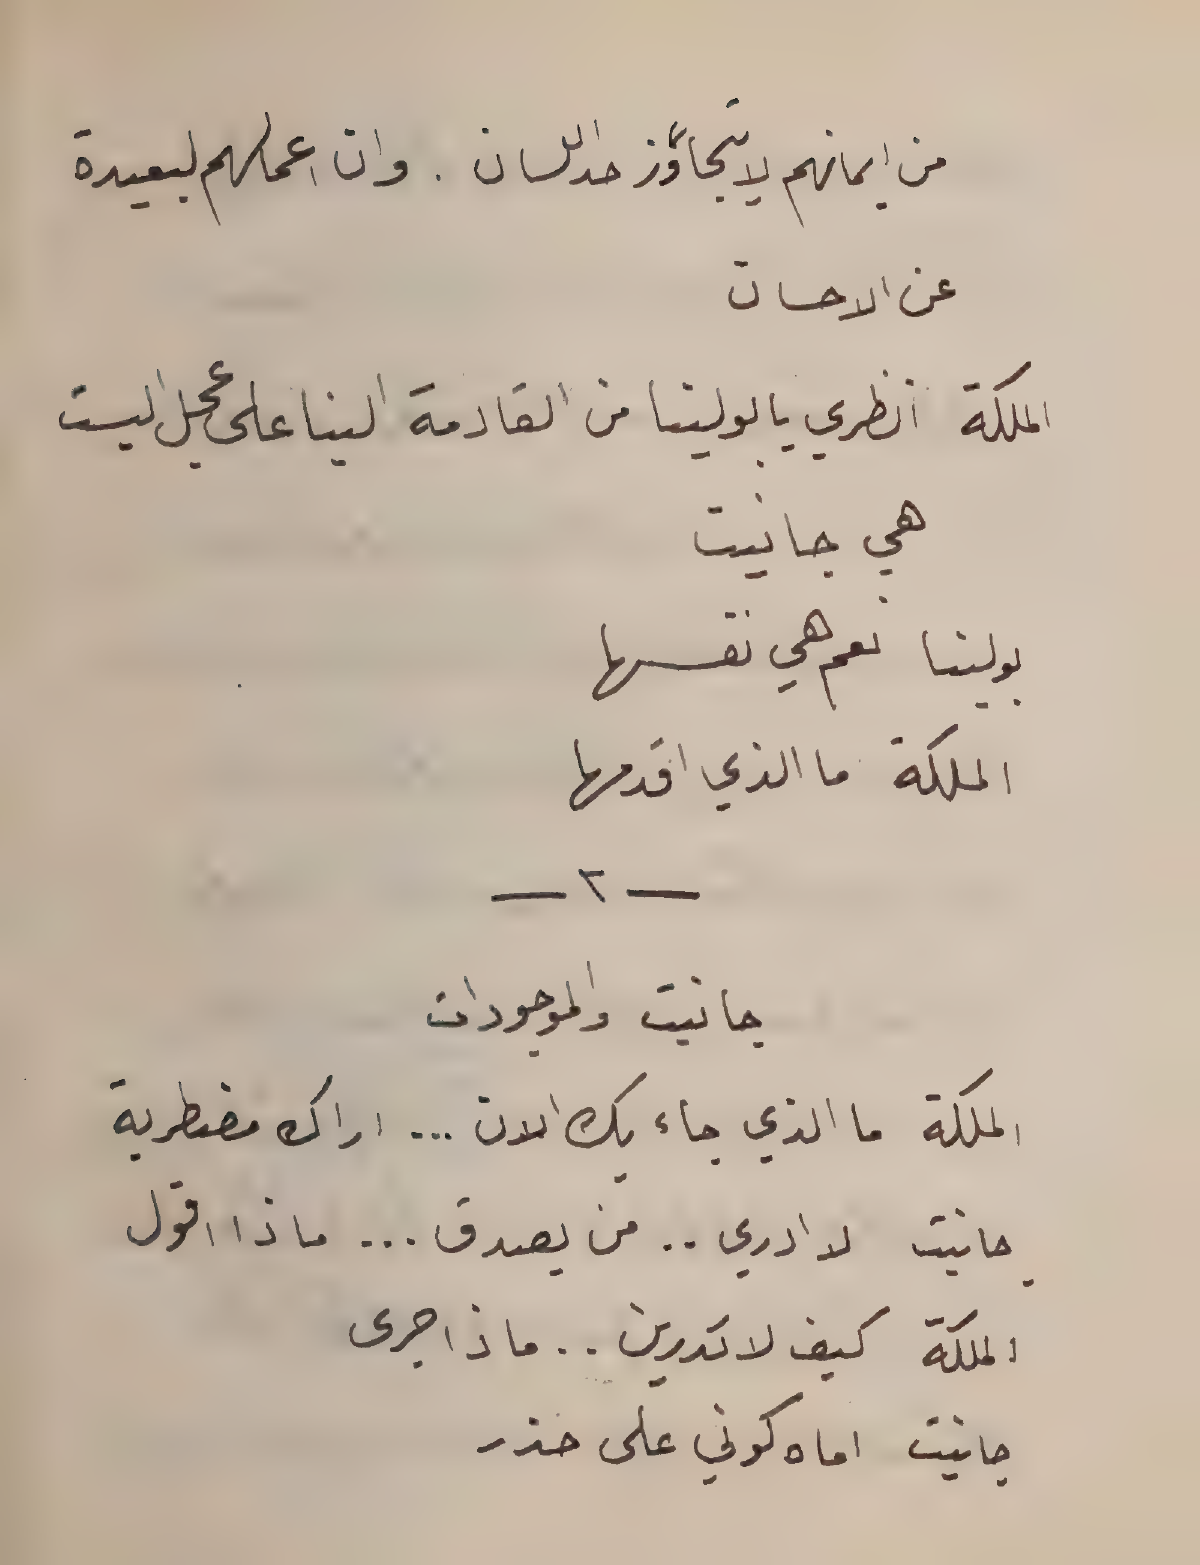 من ايمانهم لا يتجاوز حد اللسان . وان اعمالهم لبعيدة
عن الاحسان
الملكة انظري يا بولينا من القادمة الينا على عجل اليست
هي جانيت
بولينا نعم هي نفسها
الملكة ما الذي اقدمها
— ٢ —
جانيت والموجودات
الملكة ما الذي جاء بك الان ... اراك مضطربة
جانيت لا ادري .. من يصدق ... ماذا اقول
الملكة كيف لا تدرين .. ماذا جرى
جانيت اماه كوني على حذر